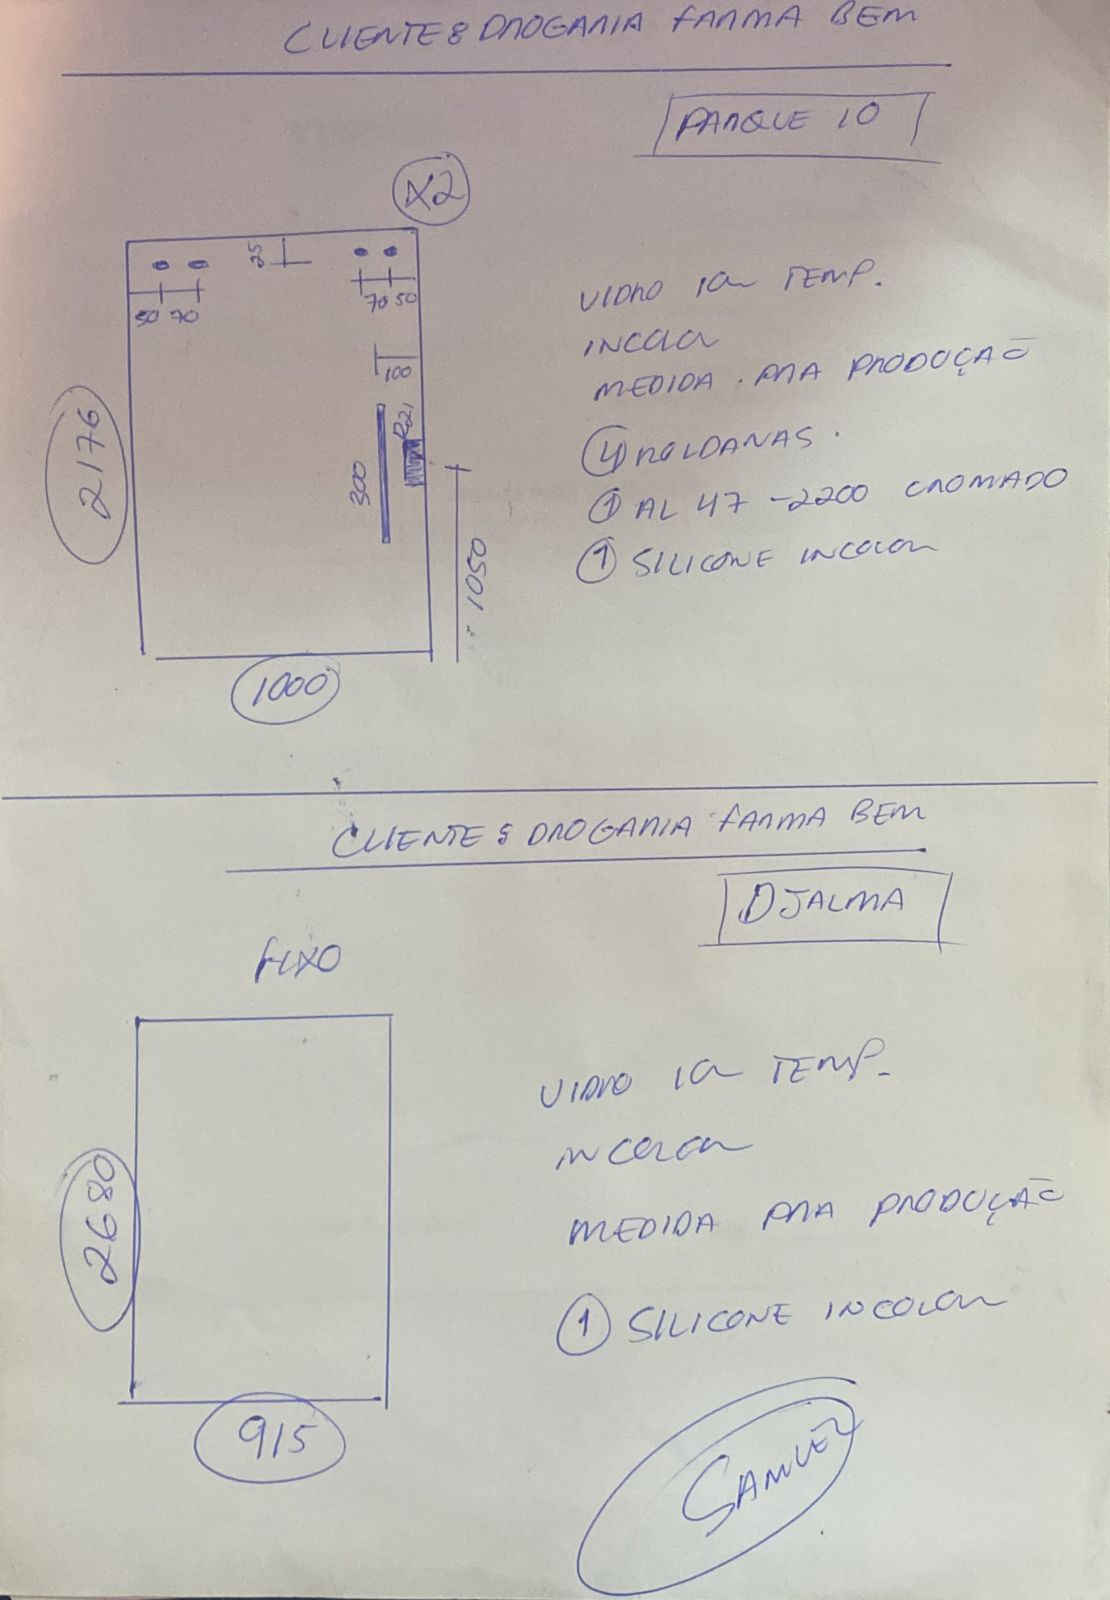 CLIENTE: DROGARIA FARMA BEM
PARQUE 10
X2
25
50 70
70 50
100
R21
300
2176
1050
1000
VIDRO 10m TEMP.
INCOLOR
MEDIDA PRA PRODUÇÃO
4 ROLDANAS.
1 AL 47 - 2200 CROMADO
1 SILICONE INCOLOR
CLIENTE: DROGARIA FARMA BEM
DJALMA
FIXO
2680
915
VIDRO 10m TEMP.
INCOLOR
MEDIDA PRA PRODUÇÃO
1 SILICONE INCOLOR
SAMUEL